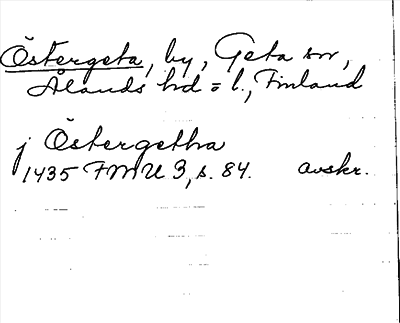 Östergeta, by, Geta sn,
Ålands hd = l., Finland
j Östergetha
1435 FMU 3, s. 84. avskr.